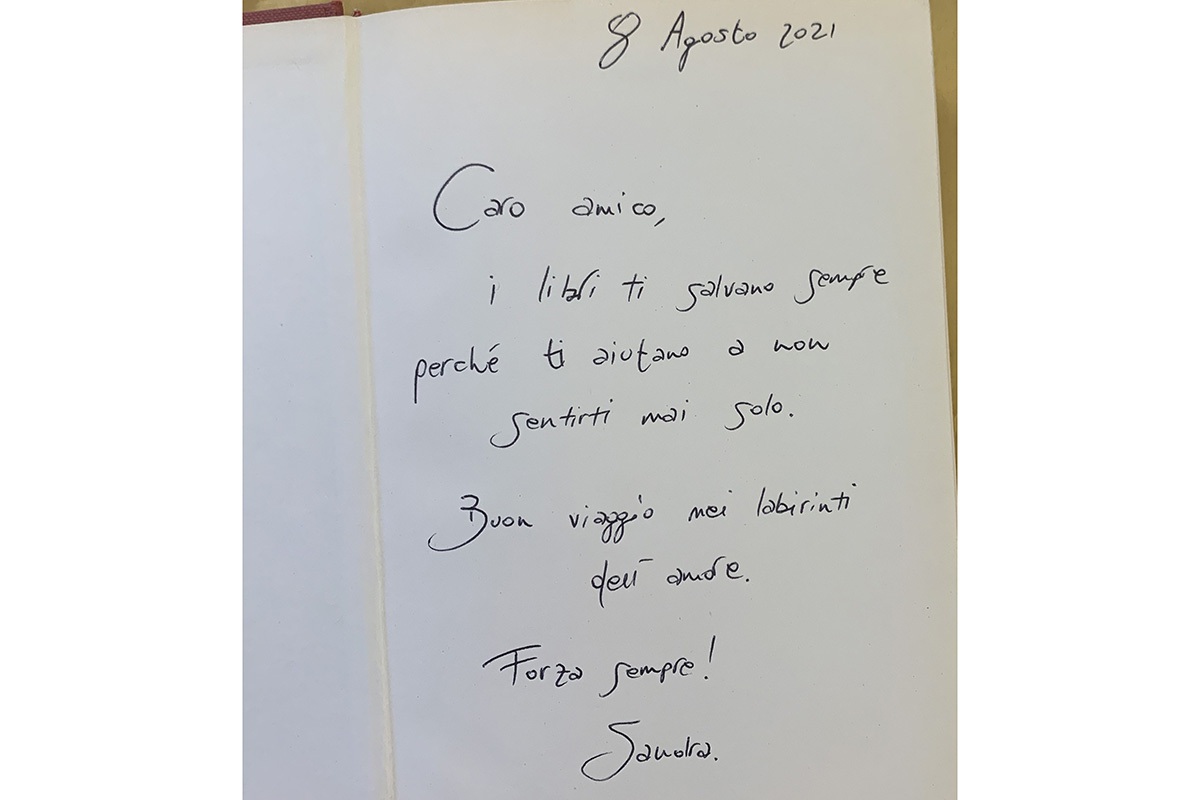 8 Agosto 2021
Caro amico,
i libri ti salvano sempre
perché ti aiutano a non
sentirti mai solo.
Buon viaggio nei labirinti
dell' amore.
Forza sempre!
Sandra.